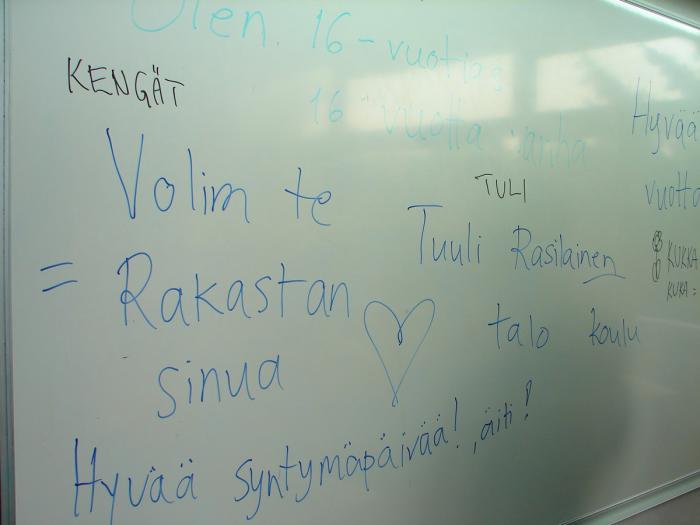 Olen 16-vuotias
16 vuotta vanha
KENGÄT
Hyvää
vuotta
Volim te
TULI
Tuuli Rasilainen
KUKKA
KUKA =
= Rakastan
sinua
talo koulu
Hyvää syntymäpäivää!, äiti!